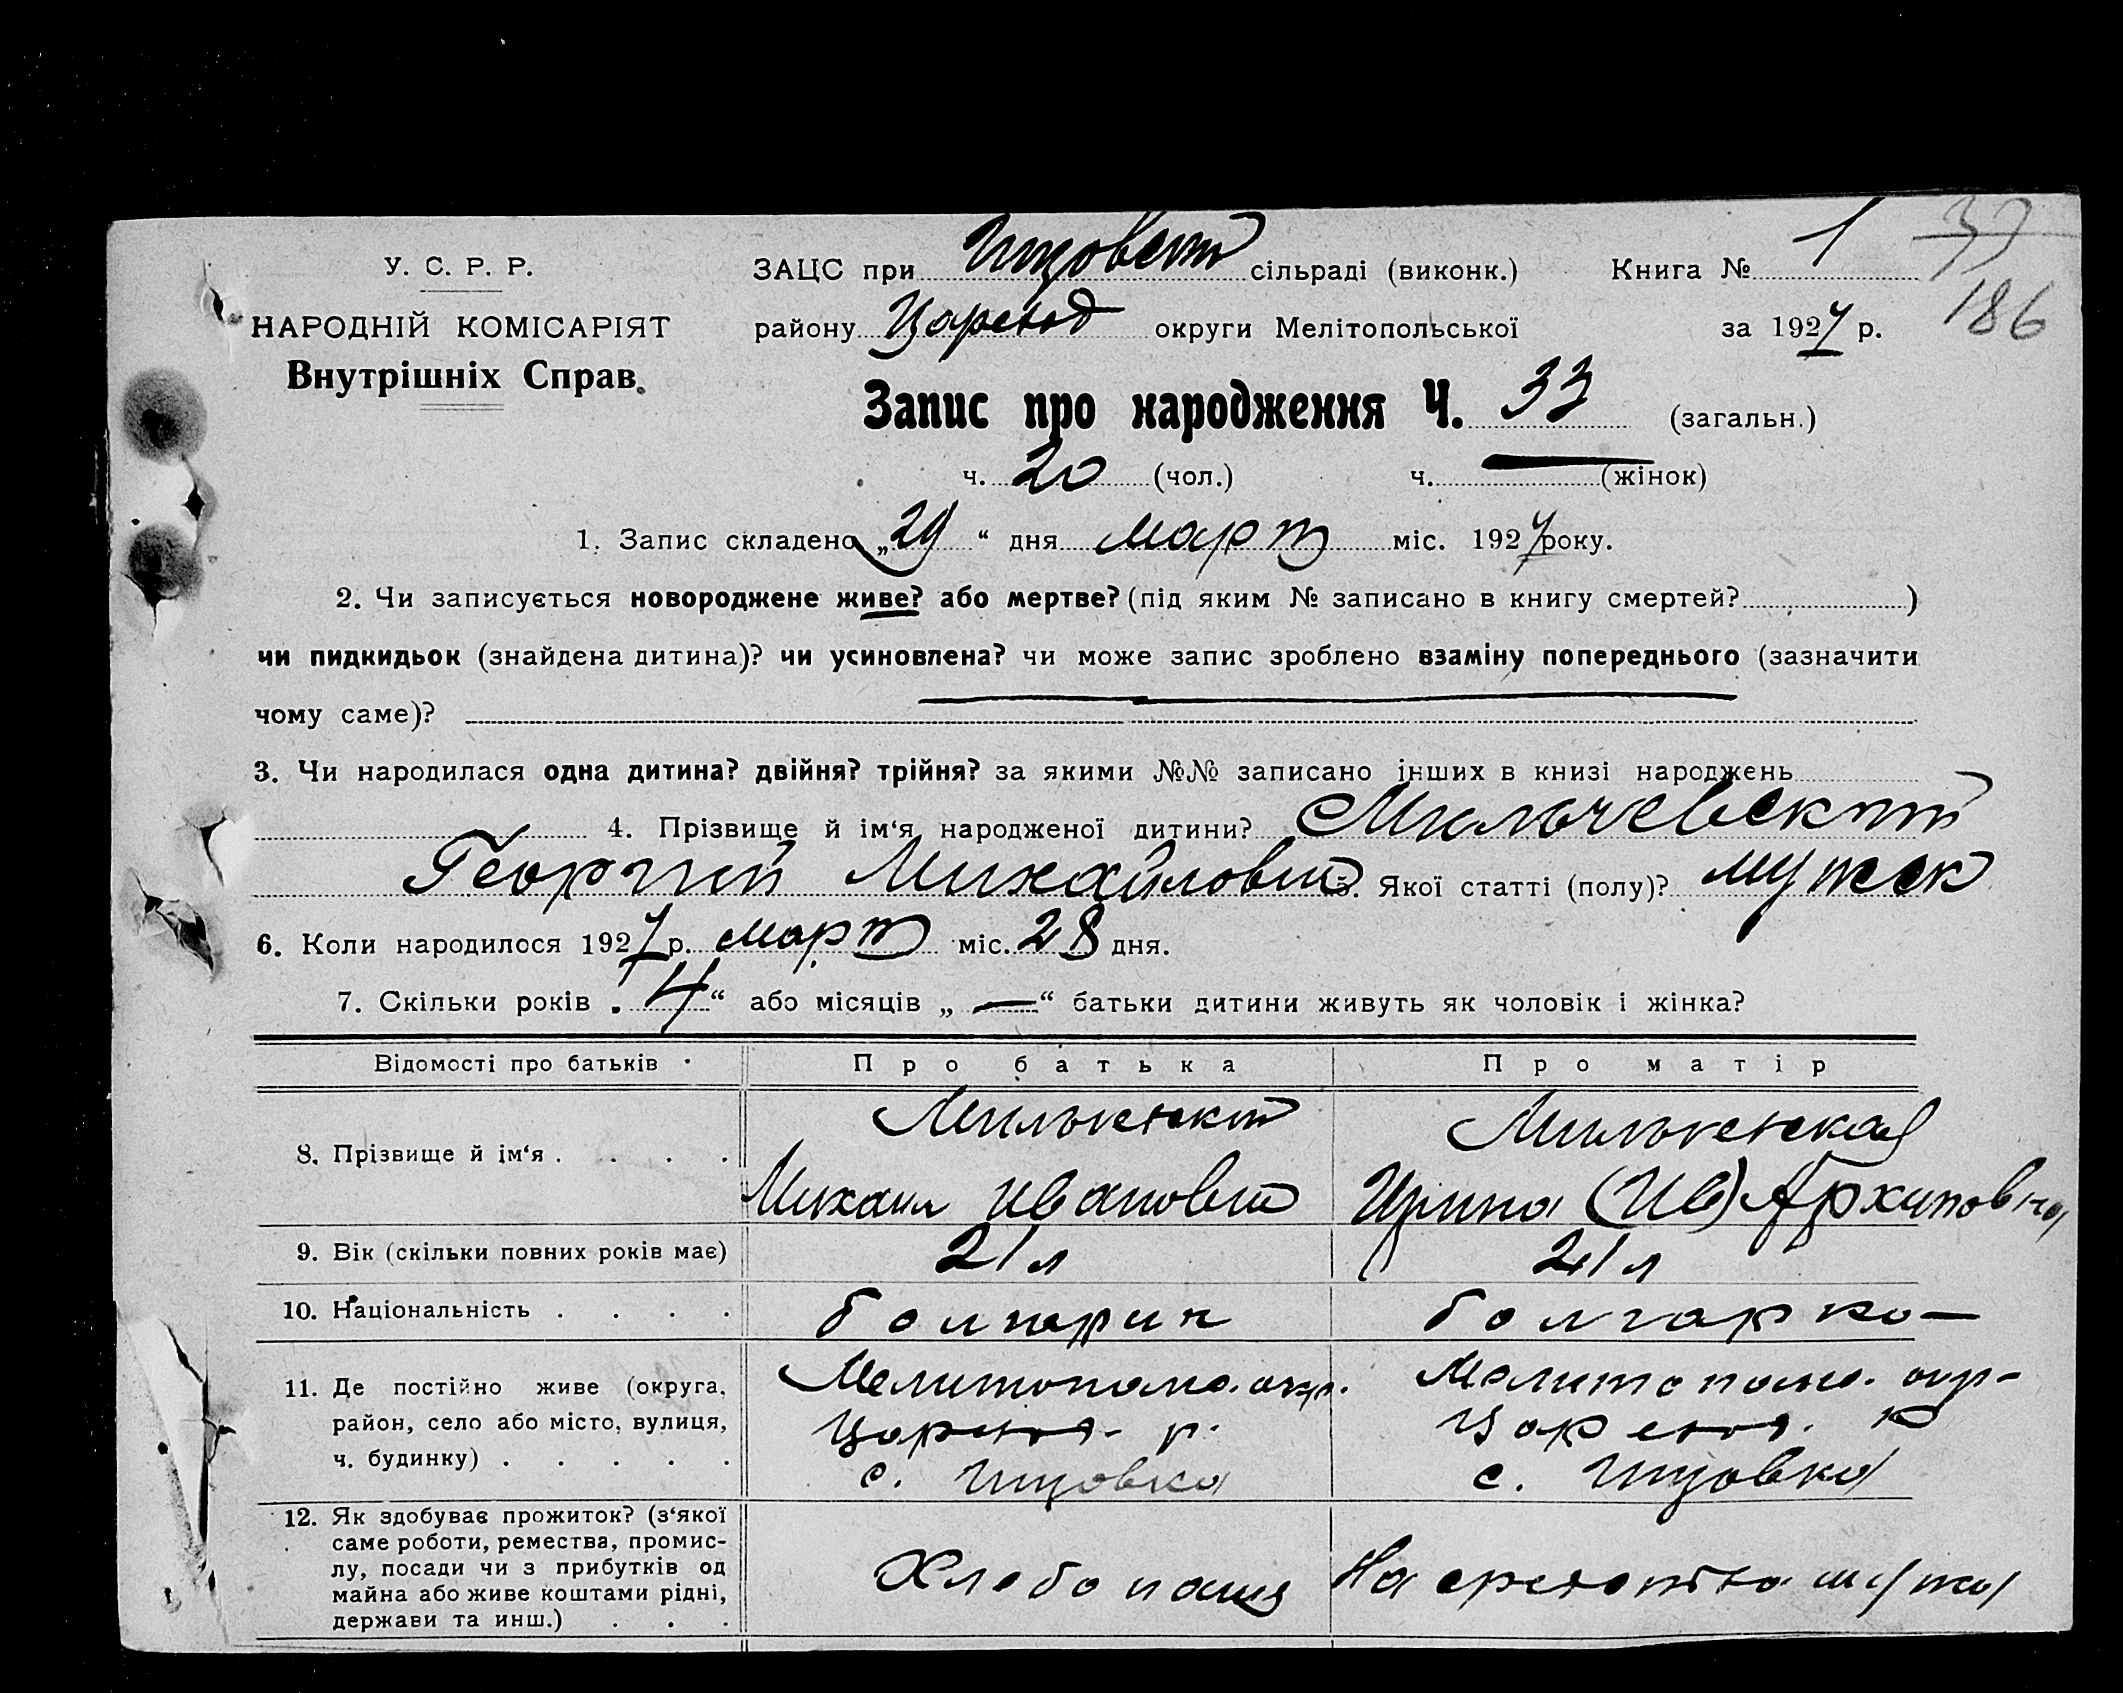 У. С. Р. Р.
НАРОДНІЙ КОМІСАРІЯТ
Внутрішніх Справ.
ЗАЦС при сільраді (виконк.) Книга № 1 37
району округи Мелітопольської за 1927 р. 186
Запис про народження Ч. 33 (загальн.)
ч. 20 (чол.) ч. — (жінок)
1. Запис складено „29“ дня март міс. 1927 року.
2. Чи записується новороджене живе? або мертве? (під яким № записано в книгу смертей? )
чи пидкидьок (знайдена дитина)? чи усиновлена? чи може запис зроблено взаміну попереднього (зазначити
чому саме)?
3. Чи народилася одна дитина? двійня? трійня? за якими №№ записано інших в книзі народжень
4. Прізвище й ім‘я народженої дитини? Мильчевский
Георгий Михайлович 5. Якої статті (полу)? мужск
6. Коли народилося 1927 р. март міс. 28 дня.
7. Скільки років „4“ або місяців „—“ батьки дитини живуть як чоловік і жінка?
Відомості про батьків Про батька Про матір
8. Прізвище й ім‘я . . . .
Михаил Иванович Ирина (Ив) Архиповна
9. Вік (скільки повних років має) 21 л 21 л
10. Національність . . . . болгарин болгарка
11. Де постійно живе (округа, Мелитопольс. окр. Мелитопольс. окр.
район, село або місто, вулиця, р. р
ч. будинку) . . . . . с. с.
12. Як здобуває прожиток? (з‘якої
саме роботи, ремества, промис-
лу, посади чи з прибутків од Хлебопаш На средства мужа
майна або живе коштами рідні,
держави та инш.) . . .